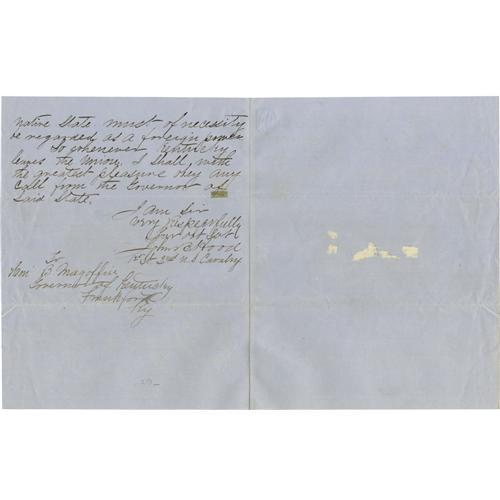 native State must of necessity
be regarded as a foreign power
So whenever Kentucky
leaves the Union, I shall, with
the greatest pleasure obey any
Call from the Governor of
Said State.
I am Sir
very respectfully
Your obt Svt
John B Hood
1st Lt 2nd U.S. Cavalry
To
Hon B Magoffin
Governor of Kentucky
Frankfort
Ky